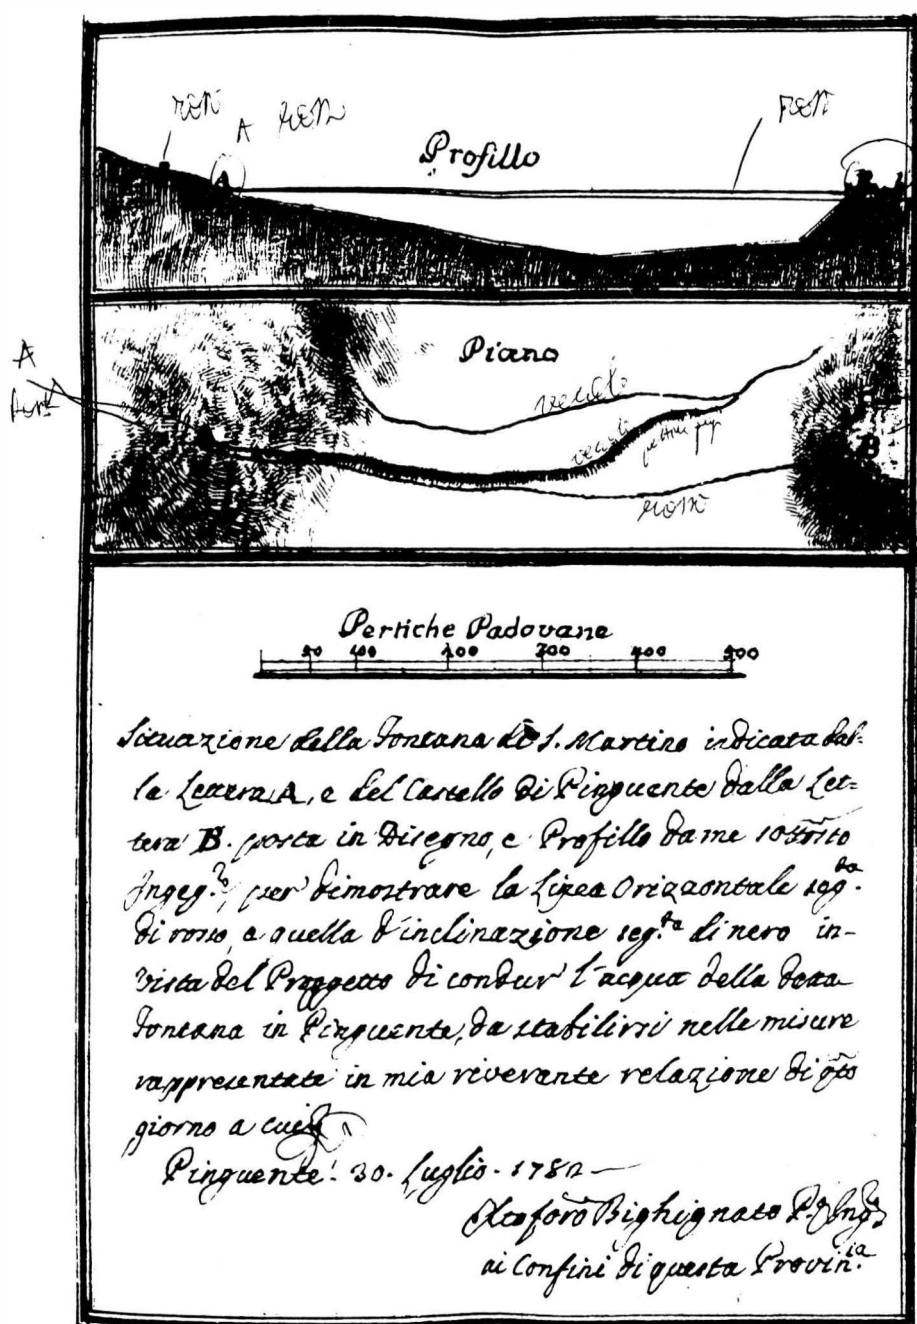 A
Profillo
A
B
A
Piano
B
Pertiche Padovane
50 100 200 300 400 500
Situazione della Fontana di S. Martino indicata dal-
la Lettera A, e del Castello di Pinguente dalla Let=
tera B. posta in Disegno, e Profillo da me sottoscto
Ingeg.re, per dimostrare la Linea Orizzontale seg.da
di rosso, e quella d'inclinazione seg.da di nero in-
vista del Proggetto di condur l'acqua della detta
Fontana in Pinguente, da stabilirsi nelle misure
rappresentate in mia riverente relazione di qto
giorno a cui
Pinguente. 30. Luglio. 1782
Bighignato P. Ing.
ai Confini di questa Provin.ia